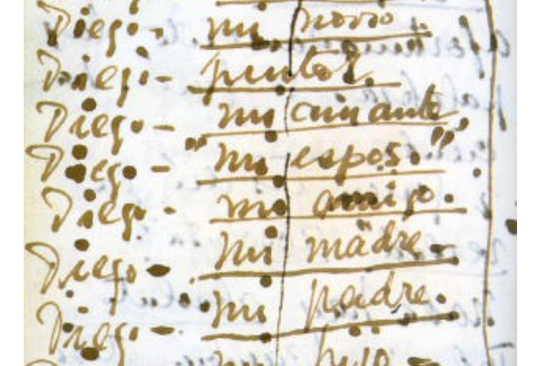 Diego - mi novio
Diego - pintor.
Diego - mi amante
Diego - "mi esposo"
Diego - mi amigo.
Diego - mi mädre -
Diego - mi padre.
Diego - mi hijo -